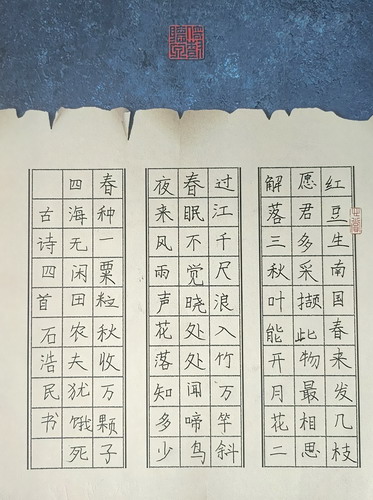 红豆生南国春来发几枝
愿君多采撷此物最相思
解落三秋叶能开月花二
过江千尺浪入竹万竿斜
春眠不觉晓处处闻啼鸟
夜来风雨声花落知多少
春种一粟粒秋收万颗子
四海无闲田农夫犹饿死
古诗四首石浩民书